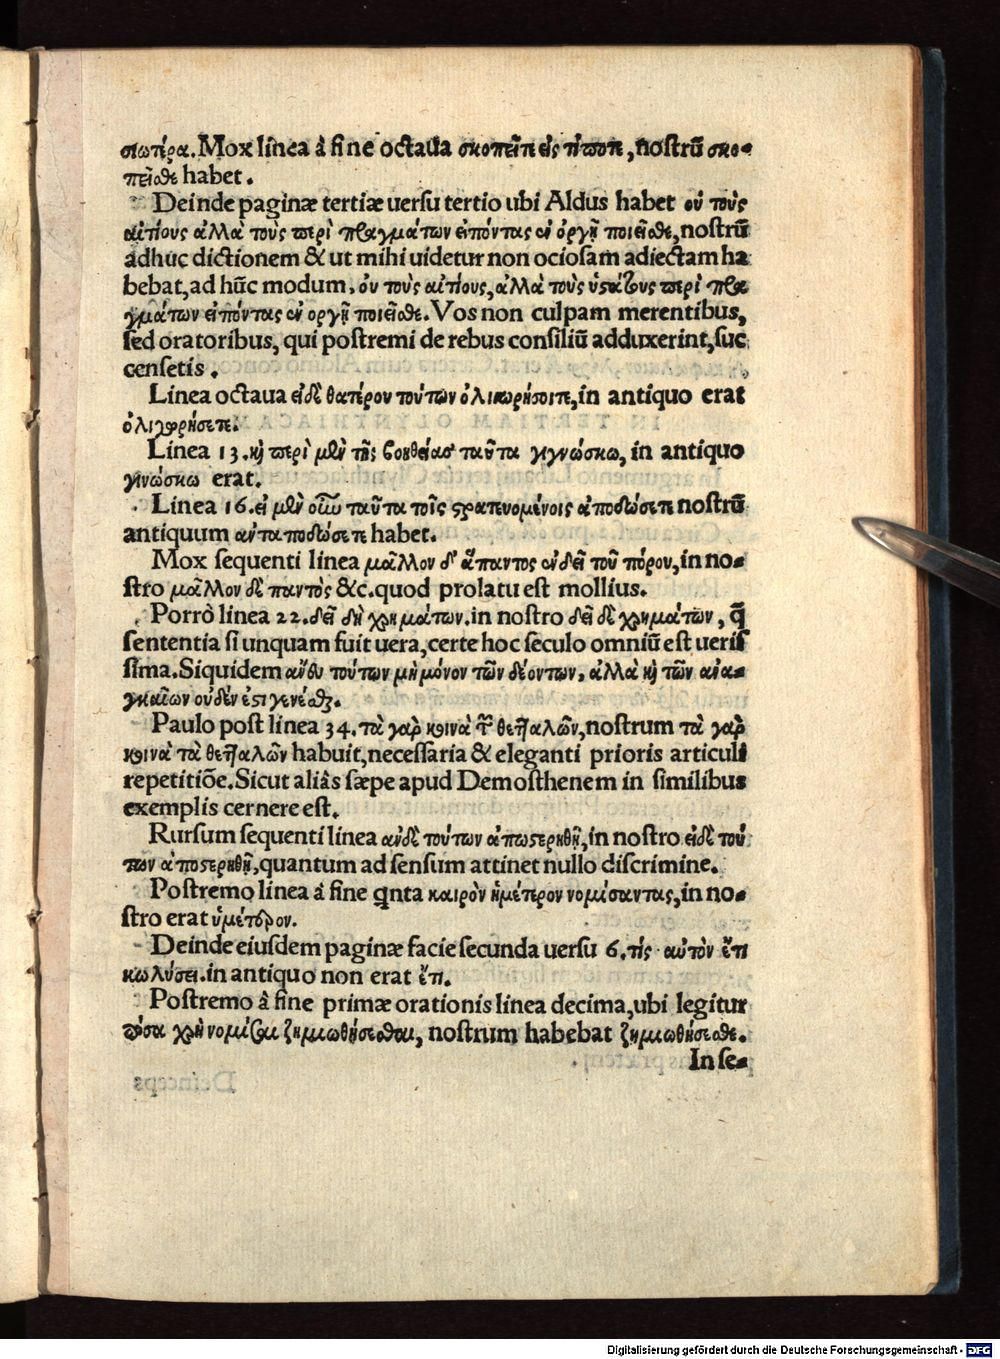 σιωπέρα. Mox linea â fine octaua σκοπεῖτε εἰς τίποτε, nostrũ σκο-
πεῖσθε habet.
Deinde paginæ tertiæ uersu tertio ubi Aldus habet οὐ τοὺς
αἰτίους ἀλλὰ τοὺς περὶ πραγμάτων εἰπόντας ἐν ὀργῇ ποιεῖσθε, nostrũ
adhuc dictionem & ut mihi uidetur non ociosam adiectam ha
bebat, ad hũc modum, οὐ τοὺς αἰτίους, ἀλλὰ τοὺς ὑστάτους περὶ πρα
γμάτων εἰπόντας ἐν ὀργῇ ποιεῖσθε. Vos non culpam merentibus,
sed oratoribus, qui postremi de rebus consiliũ adduxerint, suc
censetis.
Linea octaua εἰ δὲ θατέρου τούτων ὀλιγωρήσοιτε, in antiquo erat
ὀλιγωρήσετε.
Linea 13. καὶ περὶ μὲν τῆς βοηθείας ταῦτα γιγνώσκω, in antiquo
γινώσκω erat.
Linea 16. εἰ μὲν οὖν ταῦτα τοῖς στρατευομένοις ἀποδώσετε nostrũ
antiquum ἀνταποδώσετε habet.
Mox sequenti linea μᾶλλον δ' ἅπαντος ἐνδεῖ τοῦ πόρου, in no-
stro μᾶλλον δὲ παντὸς &c. quod prolatu est mollius.
Porrò linea 22. δεῖ δὴ χρημάτων. in nostro δεῖ δὲ χρημάτων, q̃
sententia si unquam fuit uera, certe hoc seculo omniũ est ueris
sima. Siquidem ἄνευ τούτων μὴ μόνον τῶν δέοντων, ἀλλὰ καὶ τῶν ἀνα-
γκαίων οὐδέν ἐστι γενέσθαι.
Paulo post linea 34. τὰ γὰρ κοινὰ τῶν θετταλῶν, nostrum τὰ γὰρ
κοινὰ τὰ θετταλῶν habuit, necessaria & eleganti prioris articuli
repetitiõe. Sicut aliâs sæpe apud Demosthenem in similibus
exemplis cernere est.
Rursum sequenti linea ἂν δὲ τούτων ἀποστερηθῇ, in nostro εἰ δὲ τού
των ἀποστερηθῇ, quantum ad sensum attinet nullo discrimine.
Postremo linea â fine qnta καιρὸν ἡμέτερον νομίσαντας, in no-
stro erat ὑμέτερον.
Deinde eiusdem paginæ facie secunda uersu 6. τίς αὐτὸν ἔτι
κωλύσει. in antiquo non erat ἔτι.
Postremo â fine primæ orationis linea decima, ubi legitur
πόσα χρὴ νομίσαι ζημιωθήσεσθαι, nostrum habebat ζημιωθήσεσθε.
In se-
Digitalisierung gefördert durch die Deutsche Forschungsgemeinschaft - DFG